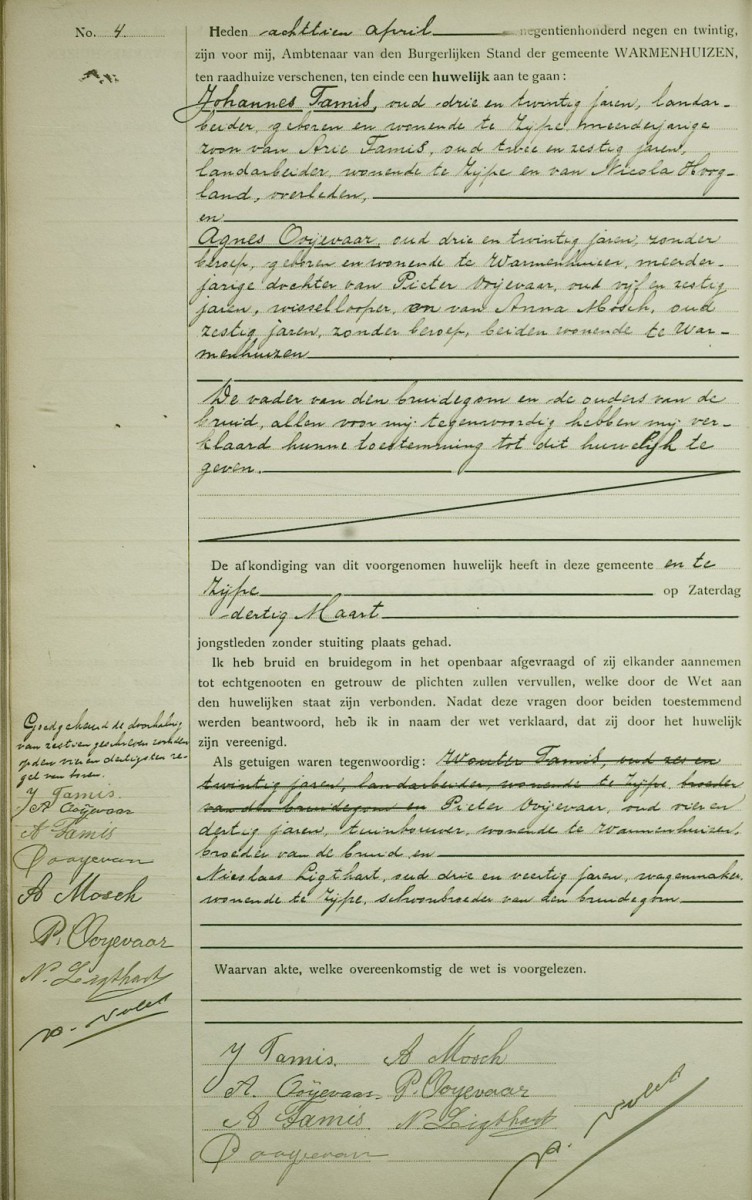 No. 4.
Heden achttien April negentienhonderd negen en twintig,
zijn voor mij, Ambtenaar van den Burgerlijken Stand der gemeente WARMENHUIZEN,
ten raadhuize verschenen, ten einde een huwelijk aan te gaan:
Johannes Tamis, oud drie en twintig jaren, landar-
beider, geboren en wonende te Zijpe, meerderjarige
zoon van Arie Tamis, oud twee en zestig jaren,
landarbeider, wonende te Zijpe en van Nicola Hoog-
land, overleden,
en
Agnes Ooijevaar, oud drie en twintig jaren, zonder
beroep, geboren en wonende te Warmenhuizen, meerder-
jarige dochter van Pieter Ooijevaar, oud vijf en zestig
jaren, wissellooper, en van Anna Mosch, oud
zestig jaren, zonder beroep, beiden wonende te War-
menhuizen
De vader van den bruidegom en de ouders van de
bruid, allen voor mij tegenwoordig hebben mij ver-
klaard hunne toestemming tot dit huwelijk te
geven.
De afkondiging van dit voorgenomen huwelijk heeft in deze gemeente en te
Zijpe op Zaterdag
dertig Maart
jongstleden zonder stuiting plaats gehad.
Ik heb bruid en bruidegom in het openbaar afgevraagd of zij elkander aannemen
tot echtgenooten en getrouw de plichten zullen vervullen, welke door de Wet aan
den huwelijken staat zijn verbonden. Nadat deze vragen door beiden toestemmend
werden beantwoord, heb ik in naam der wet verklaard, dat zij door het huwelijk
zijn vereenigd.
Als getuigen waren tegenwoordig: Wouter Tamis, oud zes en
twintig jaren, landarbeider, wonende te Zijpe, broeder
van den bruidegom en Pieter Ooijevaar, oud vier en
dertig jaren, tuinbouwer, wonende te Warmenhuizen,
broeder van de bruid en
Nicolaas Ligthart, oud drie en veertig jaren, wagenmaker,
wonende te Zijpe, schoonbroeder van den bruidegom
Waarvan akte, welke overeenkomstig de wet is voorgelezen.
Goedgekeurd de doorhaling
van zestien geschreven woorden
op den vier en dertigsten re-
gel van boven.
J Tamis.
A Ooijevaar
A Tamis
P Ooyevaar
A Mosch
P. Ooyevaar
N. Ligthart
J Tamis. A Mosch
A. Ooijevaar P. Ooyevaar
A Tamis N. Ligthart
P Ooyevaar